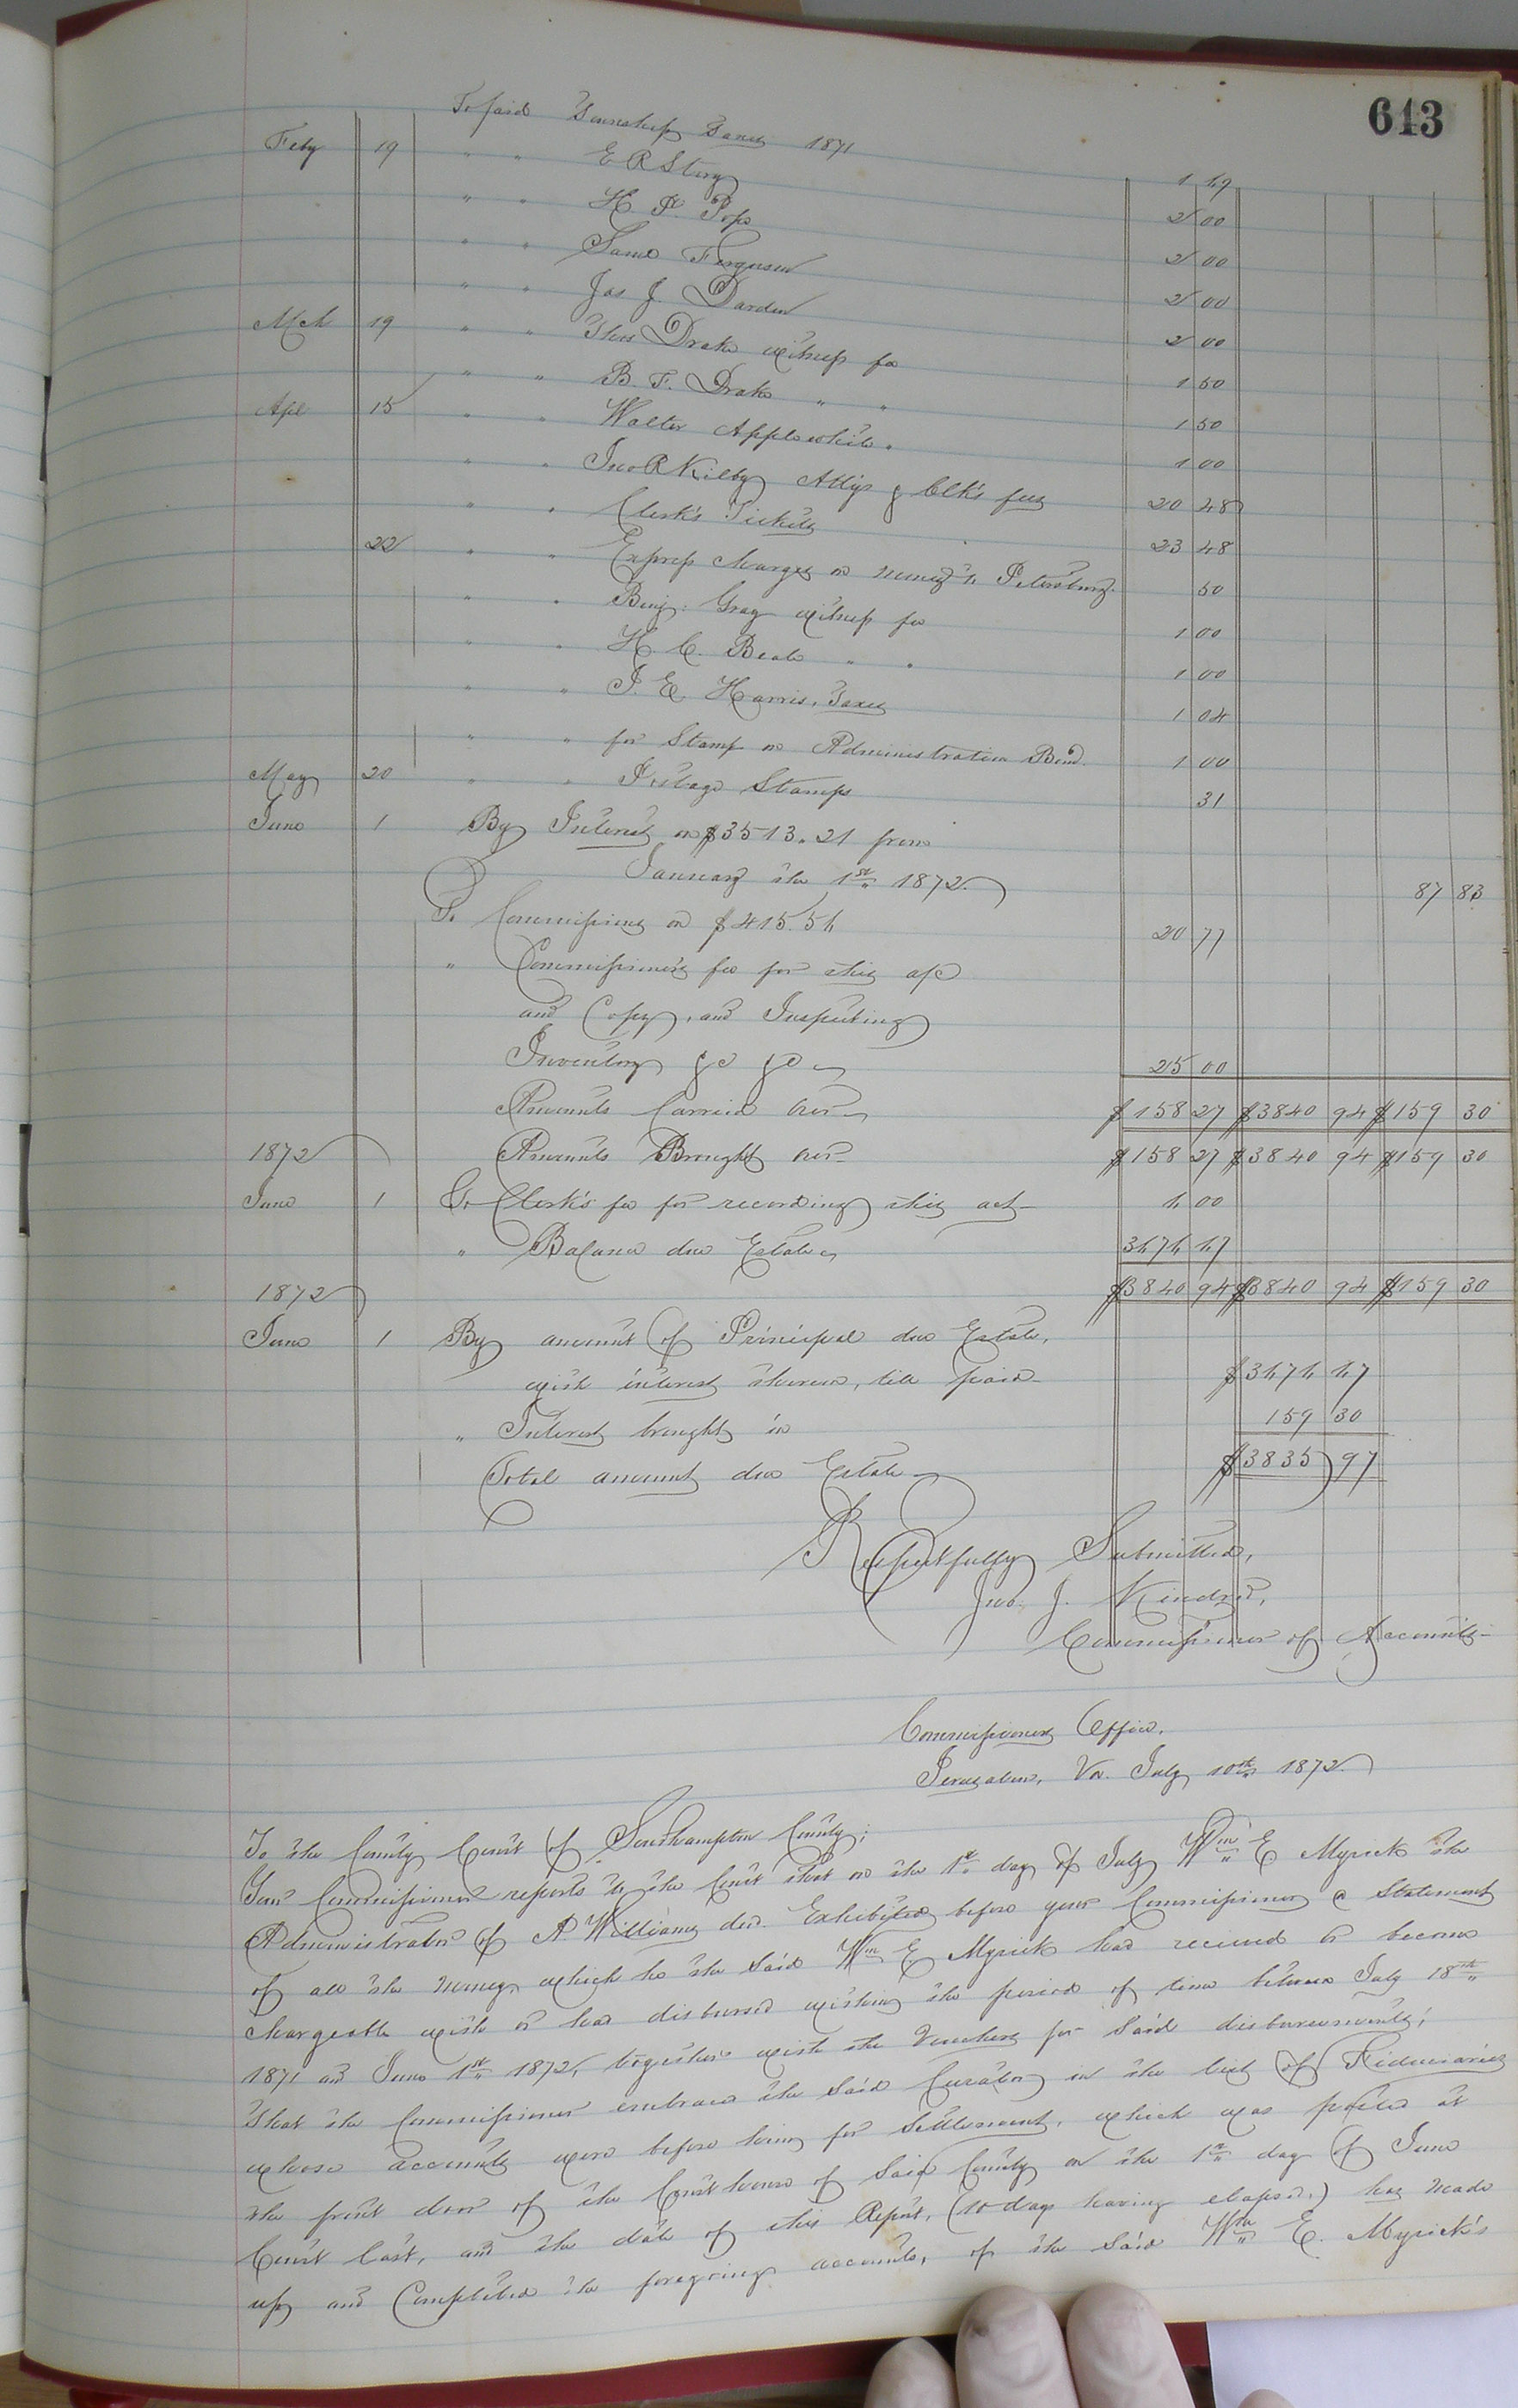 613
To paid Township Taxes 1871 1 69
Feby 19 " " E R Story 2 00
" " H. P. Pope 2 00
" " Saml Ferguson 2 00
" " Jas J. Darden 2 00
Mch 19 " " Thos Drake witness fee 1 50
" " B. F. Drake " " 1 50
Apl 15 " " Walter Applewhite. 1 00
" " Jno R Kilby Atty's & Clk's fees 20 48
" " Clerk's Tickets 23 48
22 " " Express charges on money to Petersburg. 50
" " Benj: Gray witness fee 1 00
" " H. C. Beale " " 1 00
" " J. E. Harris, Taxes 1 04
" " for Stamp on Administration Bond. 1 00
May 20 " " Postage Stamps 31
June 1 By Interest on $3513.21 from
January the 1st 1872 87 83
To Commissions on $415.56 20 77
" Commissioner's fee for this a/c
and Copy, and Inspecting
Inventory &c &c 25 00
Amounts Carried over $158 27 $3840 94 $159 30
1872 Amounts Brought over $158 27 $3840 94 $159 30
June 1 To Clerk's fee for recording this act 6 00
" Balance due Estate 3676 67
$3840 94 $3840 94 $159 30
1872
June 1 By amount of Principal due Estate,
with interest thereon, till paid $3676 67
" Interest brought in 159 30
Total amount due Estate $3835 97
Respectfully Submitted,
Jno. J. Kindred,
Commissioner of Accounts
Commissioners Office.
Jerusalem, Va. July 10th 1872
To the County Court of Southampton County;
Your Commissioner reports to the Court that on the 1st day of July Wm E Myrick the
Administrator of A Williams decd. Exhibited before your Commissioner a Statement
of all the money, which he the Said Wm E Myrick had received or become
chargeable with or had disbursed within the period of time between July 18th
1871 and June 1st 1872, together with the Vouchers for Said disbursements;
That the Commissioner embraced the Said Curator in the list of Fiduciaries
whose accounts were before him for Settlement, which was posted at
the front door of the Courthouse of Said County on the 1st day of June
Court last, and the date of this Report, (10 days having elapsed,) has made
up and Completed the foregoing accounts, of the Said Wm E. Myrick's